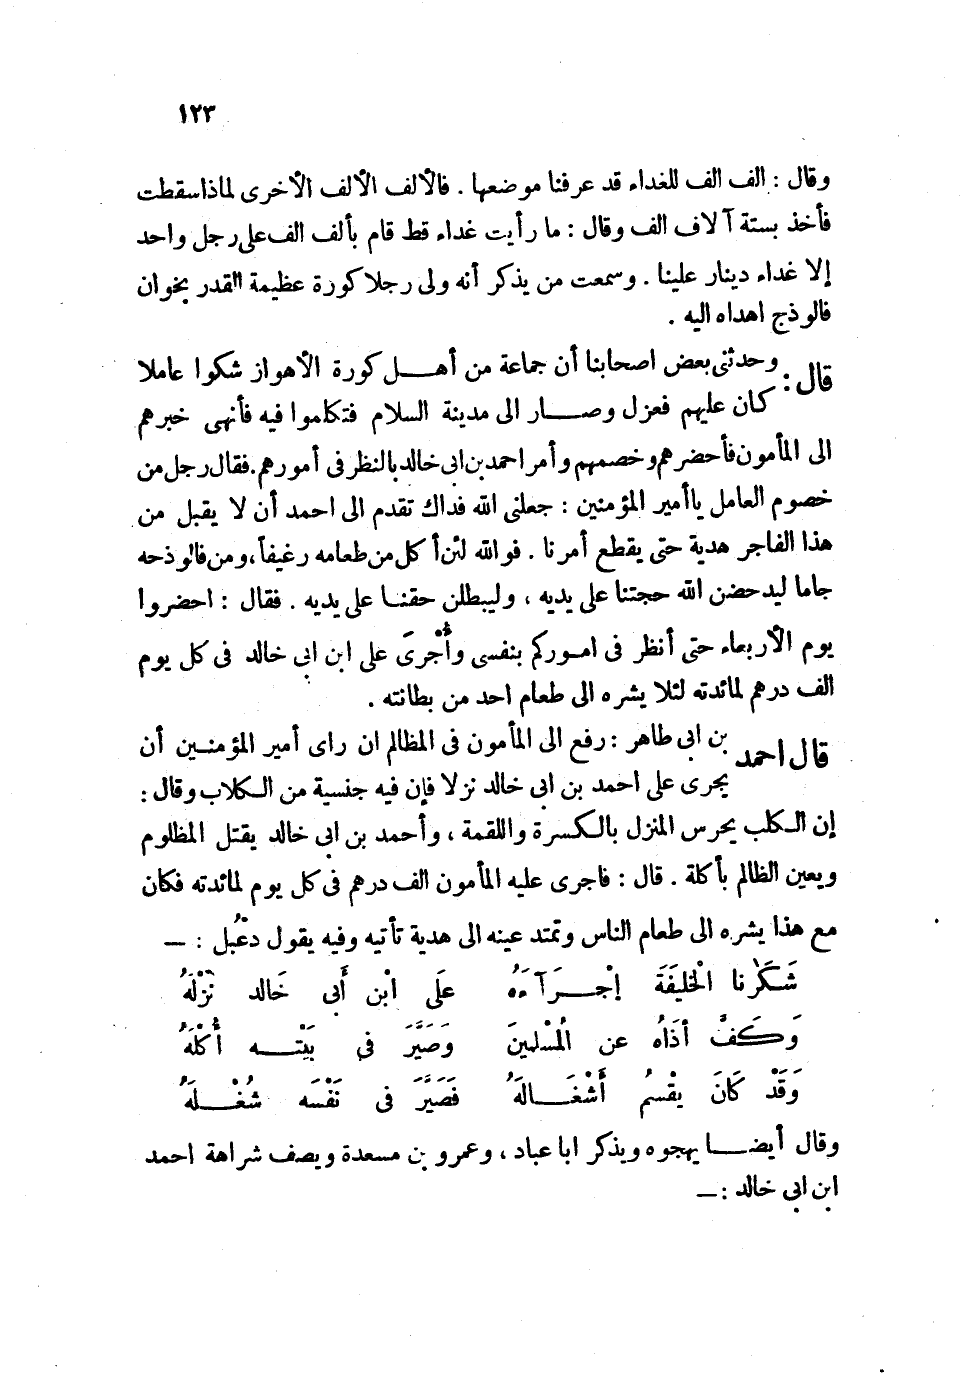 ١٢٣
وقال : الف الف للغداء قد عرفنا موضعها . فالألف الألف الأخرى لماذا سقطت
فأخذ بستة آلاف الف وقال : ما رأيت غداء قط قام بألف الف على رجل واحد
إلا غداء دينار علينا . وسمعت من يذكر أنه ولى رجلا كورة عظيمة القدر بخوان
فالوذج اهداه اليه .
قال : وحدثنى بعض اصحابنا أن جماعة من أهــل كورة الأهواز شكوا عاملا
كان عليهم فعزل وصــار الى مدينة السلام فتكاموا فيه فأنهى خبرهم
الى المأمون فأحضرهم وخصمهم وأمر احمد بن ابى خالد بالنظر فى أمورهم. فقال رجل من
خصوم العامل ياأمير المؤمنين : جعلنى الله فداك تقدم الى احمد أن لا يقبل من
هذا الفاجر هدية حتى يقطع أمرنا . فوالله لئن أكل من طعامه رغيفاً، ومن فالوذجه
جاما ليدحضن الله حجتنا على يديه ، وليبطلن حقنـا على يديه . فقال : احضروا
يوم الأربعاء حتى أنظر فى امـوركم بنفسى وأُجْرَى على ابن ابى خالد فى كل يوم
الف درهم لمائدته لئلا يشره الى طعام احد من بطانته .
قال احمد بن ابى طاهر : رفع الى المأمون فى المظالم ان راى أمير المؤمنـين أن
يجرى على احمد بن ابى خالد نزلا فإن فيه جنسية من الـكلاب وقال :
إن الـكلب يحرس المنزل بالـكسرة واللقمة ، وأحمد بن ابى خالد يقتل المظلوم
ويعين الظالم بأكلة . قال : فاجرى عليه المأمون الف درهم فى كل يوم لمائدته فكان
مع هذا يشره الى طعام الناس وتمتد عينه الى هدية تأتيه وفيه يقول دعْبل : —
شَكَرْنا الْخليفَةَ إجْــرَآءَهُ عَلَى ابْن أَبى خَالد نُزْلَهُ
وَكَفَّ أذَاهُ عن الْمُسْلمينَ وَصَيَّرَ فى بَيْتــه أُكْلَهُ
وَقَدْ كَانَ يقْسمُ أَشْغَــالَهُ فَصَيَّرَ فى نَفْسَه شُغْــلَهُ
وقال أيضــا يهجوه ويذكر ابا عباد ، وعمرو بن مسعدة ويصف شراهة احمد
ابن ابى خالد : —